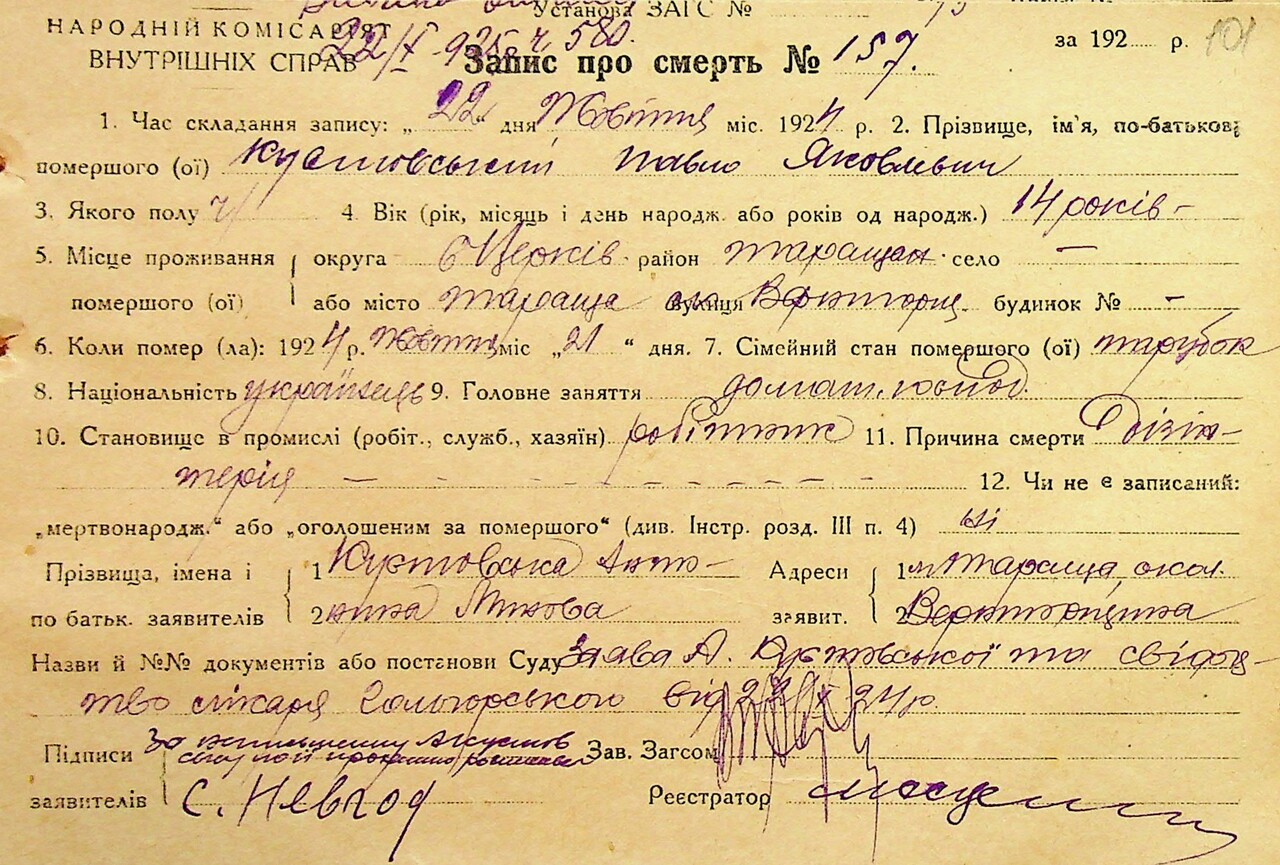 Установа ЗАГС №
НАРОДНІЙ КОМІСАРІЯТ
ВНУТРІШНІХ СПРАВ
22/X 925 ч. 580.
Запис про смерть № 157.
за 192 р. 101
1. Час складання запису: „22“ дня Жовтня міс. 1924 р. 2. Прізвище, ім'я, по-батькові
помершого (ої) Павло Яковлевич
3. Якого полу ч 4. Вік (рік, місяць і день народж. або років од народж.) 14 років –
5. Місце проживання округа б Церків. район Таращан. село –
помершого (ої) або місто Тараща вулиця будинок № –
6. Коли помер (ла): 1924 р. Жовтня міс „21“ дня. 7. Сімейний стан помершого (ої) парубок
8. Національність українець 9. Головне заняття домаш.
10. Становище в промислі (робіт., служб., хазяїн) робітник 11. Причина смерти Дізін-
терія – – – – – – – 12. Чи не є записаний:
„мертвонародж.“ або „оголошеним за помершого“ (див. Інстр. розд. III п. 4) ні
Прізвища, імена і 1 Анто- Адреси 1 м Тараща, окол.
по батьк. заявителів 2 ніна заявит. 2
Назви й №№ документів або постанови Суду Заява А. та свідоц-
тво лікаря від 22/X 24 р.
Підписи За Зав. Загсом
заявителів С. Невгод Реєстратор